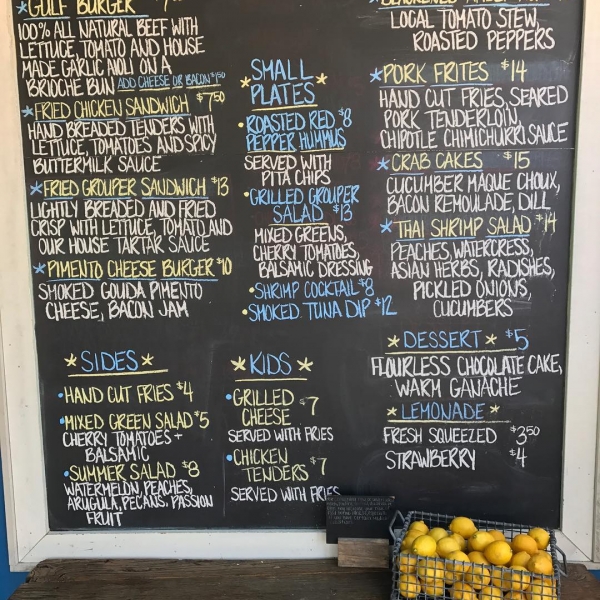 *GULF BURGER
100% ALL NATURAL BEEF WITH
LETTUCE, TOMATO AND HOUSE
MADE GARLIC AIOLI ON A
BRIOCHE BUN ADD CHEESE OR BACON $1.50
*FRIED CHICKEN SANDWICH $7.50
HAND BREADED TENDERS WITH
LETTUCE, TOMATOES AND SPICY
BUTTERMILK SAUCE
*FRIED GROUPER SANDWICH $13
LIGHTLY BREADED AND FRIED
CRISP WITH LETTUCE, TOMATO AND
OUR HOUSE TARTAR SAUCE
*PIMENTO CHEESE BURGER $10
SMOKED GOUDA PIMENTO
CHEESE, BACON JAM
*SIDES*
•HAND CUT FRIES $4
•MIXED GREEN SALAD $5
CHERRY TOMATOES +
BALSAMIC
•SUMMER SALAD $8
WATERMELON, PEACHES,
ARUGULA, PECANS, PASSION
FRUIT
*SMALL
PLATES*
•ROASTED RED $8
PEPPER HUMMUS
SERVED WITH
PITA CHIPS
•GRILLED GROUPER
SALAD $13
MIXED GREENS,
CHERRY TOMATOES,
BALSAMIC DRESSING
•SHRIMP COCKTAIL $8
•SMOKED TUNA DIP $12
*KIDS*
•GRILLED
CHEESE $7
SERVED WITH FRIES
•CHICKEN
TENDERS $7
SERVED WITH FRIES
LOCAL TOMATO STEW,
ROASTED PEPPERS
*PORK FRITES $14
HAND CUT FRIES, SEARED
PORK TENDERLOIN,
CHIPOTLE CHIMICHURRI SAUCE
*CRAB CAKES $15
CUCUMBER MAQUE CHOUX,
BACON REMOULADE, DILL
*THAI SHRIMP SALAD $14
PEACHES, WATERCRESS,
ASIAN HERBS, RADISHES,
PICKLED ONIONS,
CUCUMBERS
*DESSERT* $5
FLOURLESS CHOCOLATE CAKE,
WARM GANACHE
*LEMONADE*
FRESH SQUEEZED $3.50
STRAWBERRY $4